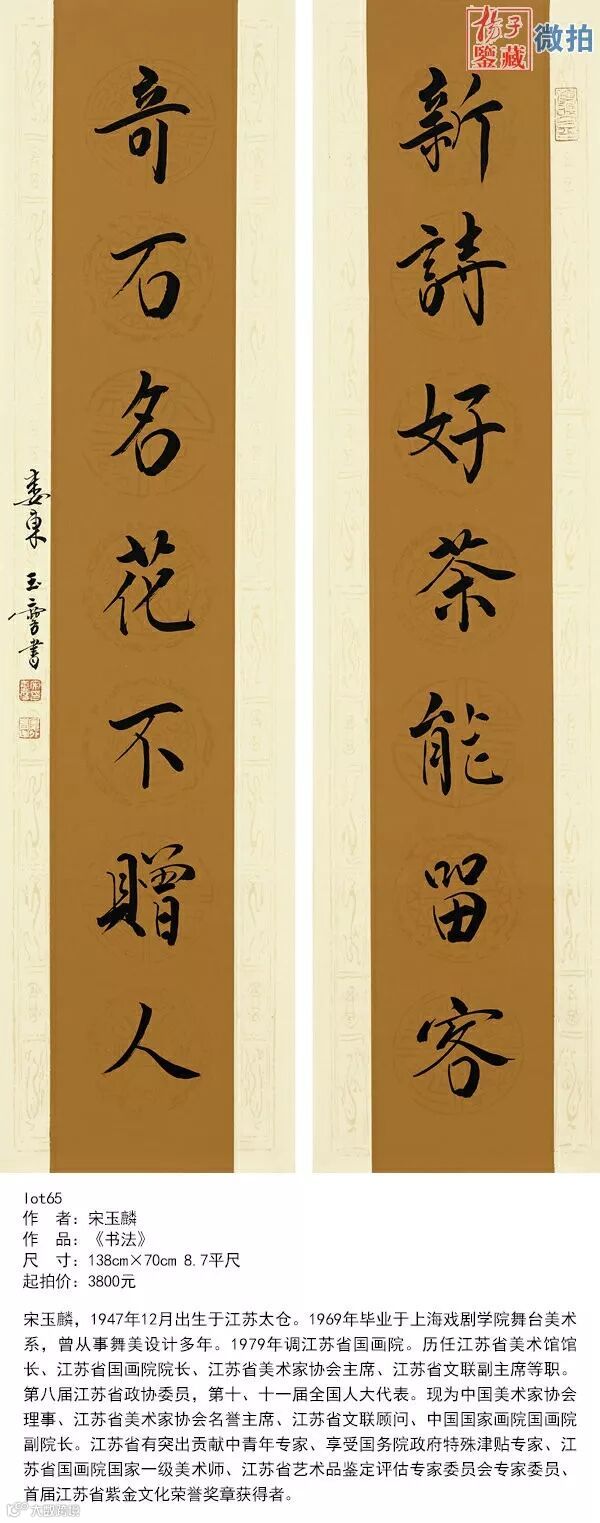 杨子
鉴藏
微拍
新詩好茶能留客
奇石名花不贈人
娄東 玉麐書
lot65
作 者：宋玉麟
作 品：《书法》
尺 寸：138cm×70cm 8.7平尺
起拍价：3800元
宋玉麟，1947年12月出生于江苏太仓。1969年毕业于上海戏剧学院舞台美术
系，曾从事舞美设计多年。1979年调江苏省国画院。历任江苏省美术馆馆
长、江苏省国画院院长、江苏省美术家协会主席、江苏省文联副主席等职。
第八届江苏省政协委员，第十、十一届全国人大代表。现为中国美术家协会
理事、江苏省美术家协会名誉主席、江苏省文联顾问、中国国家画院国画院
副院长。江苏省有突出贡献中青年专家、享受国务院政府特殊津贴专家、江
苏省国画院国家一级美术师、江苏省艺术品鉴定评估专家委员会专家委员、
首届江苏省紫金文化荣誉奖章获得者。
大数跨境